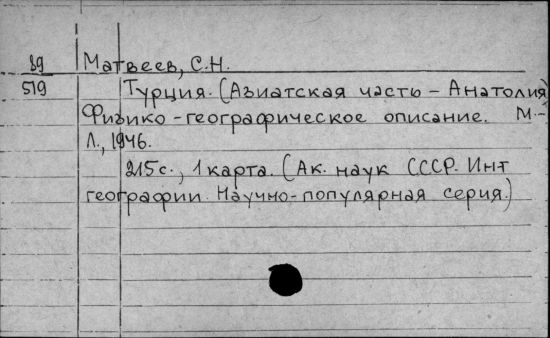 89
519
Матвеев, С.Н.
Турция. (Азиатская часть - Анатолия)
Физико-географическое описание. М.-
Л., 1946.
215 с., 1 карта. (Ак. наук СССР. Инт
географии. Научно-популярная серия.)